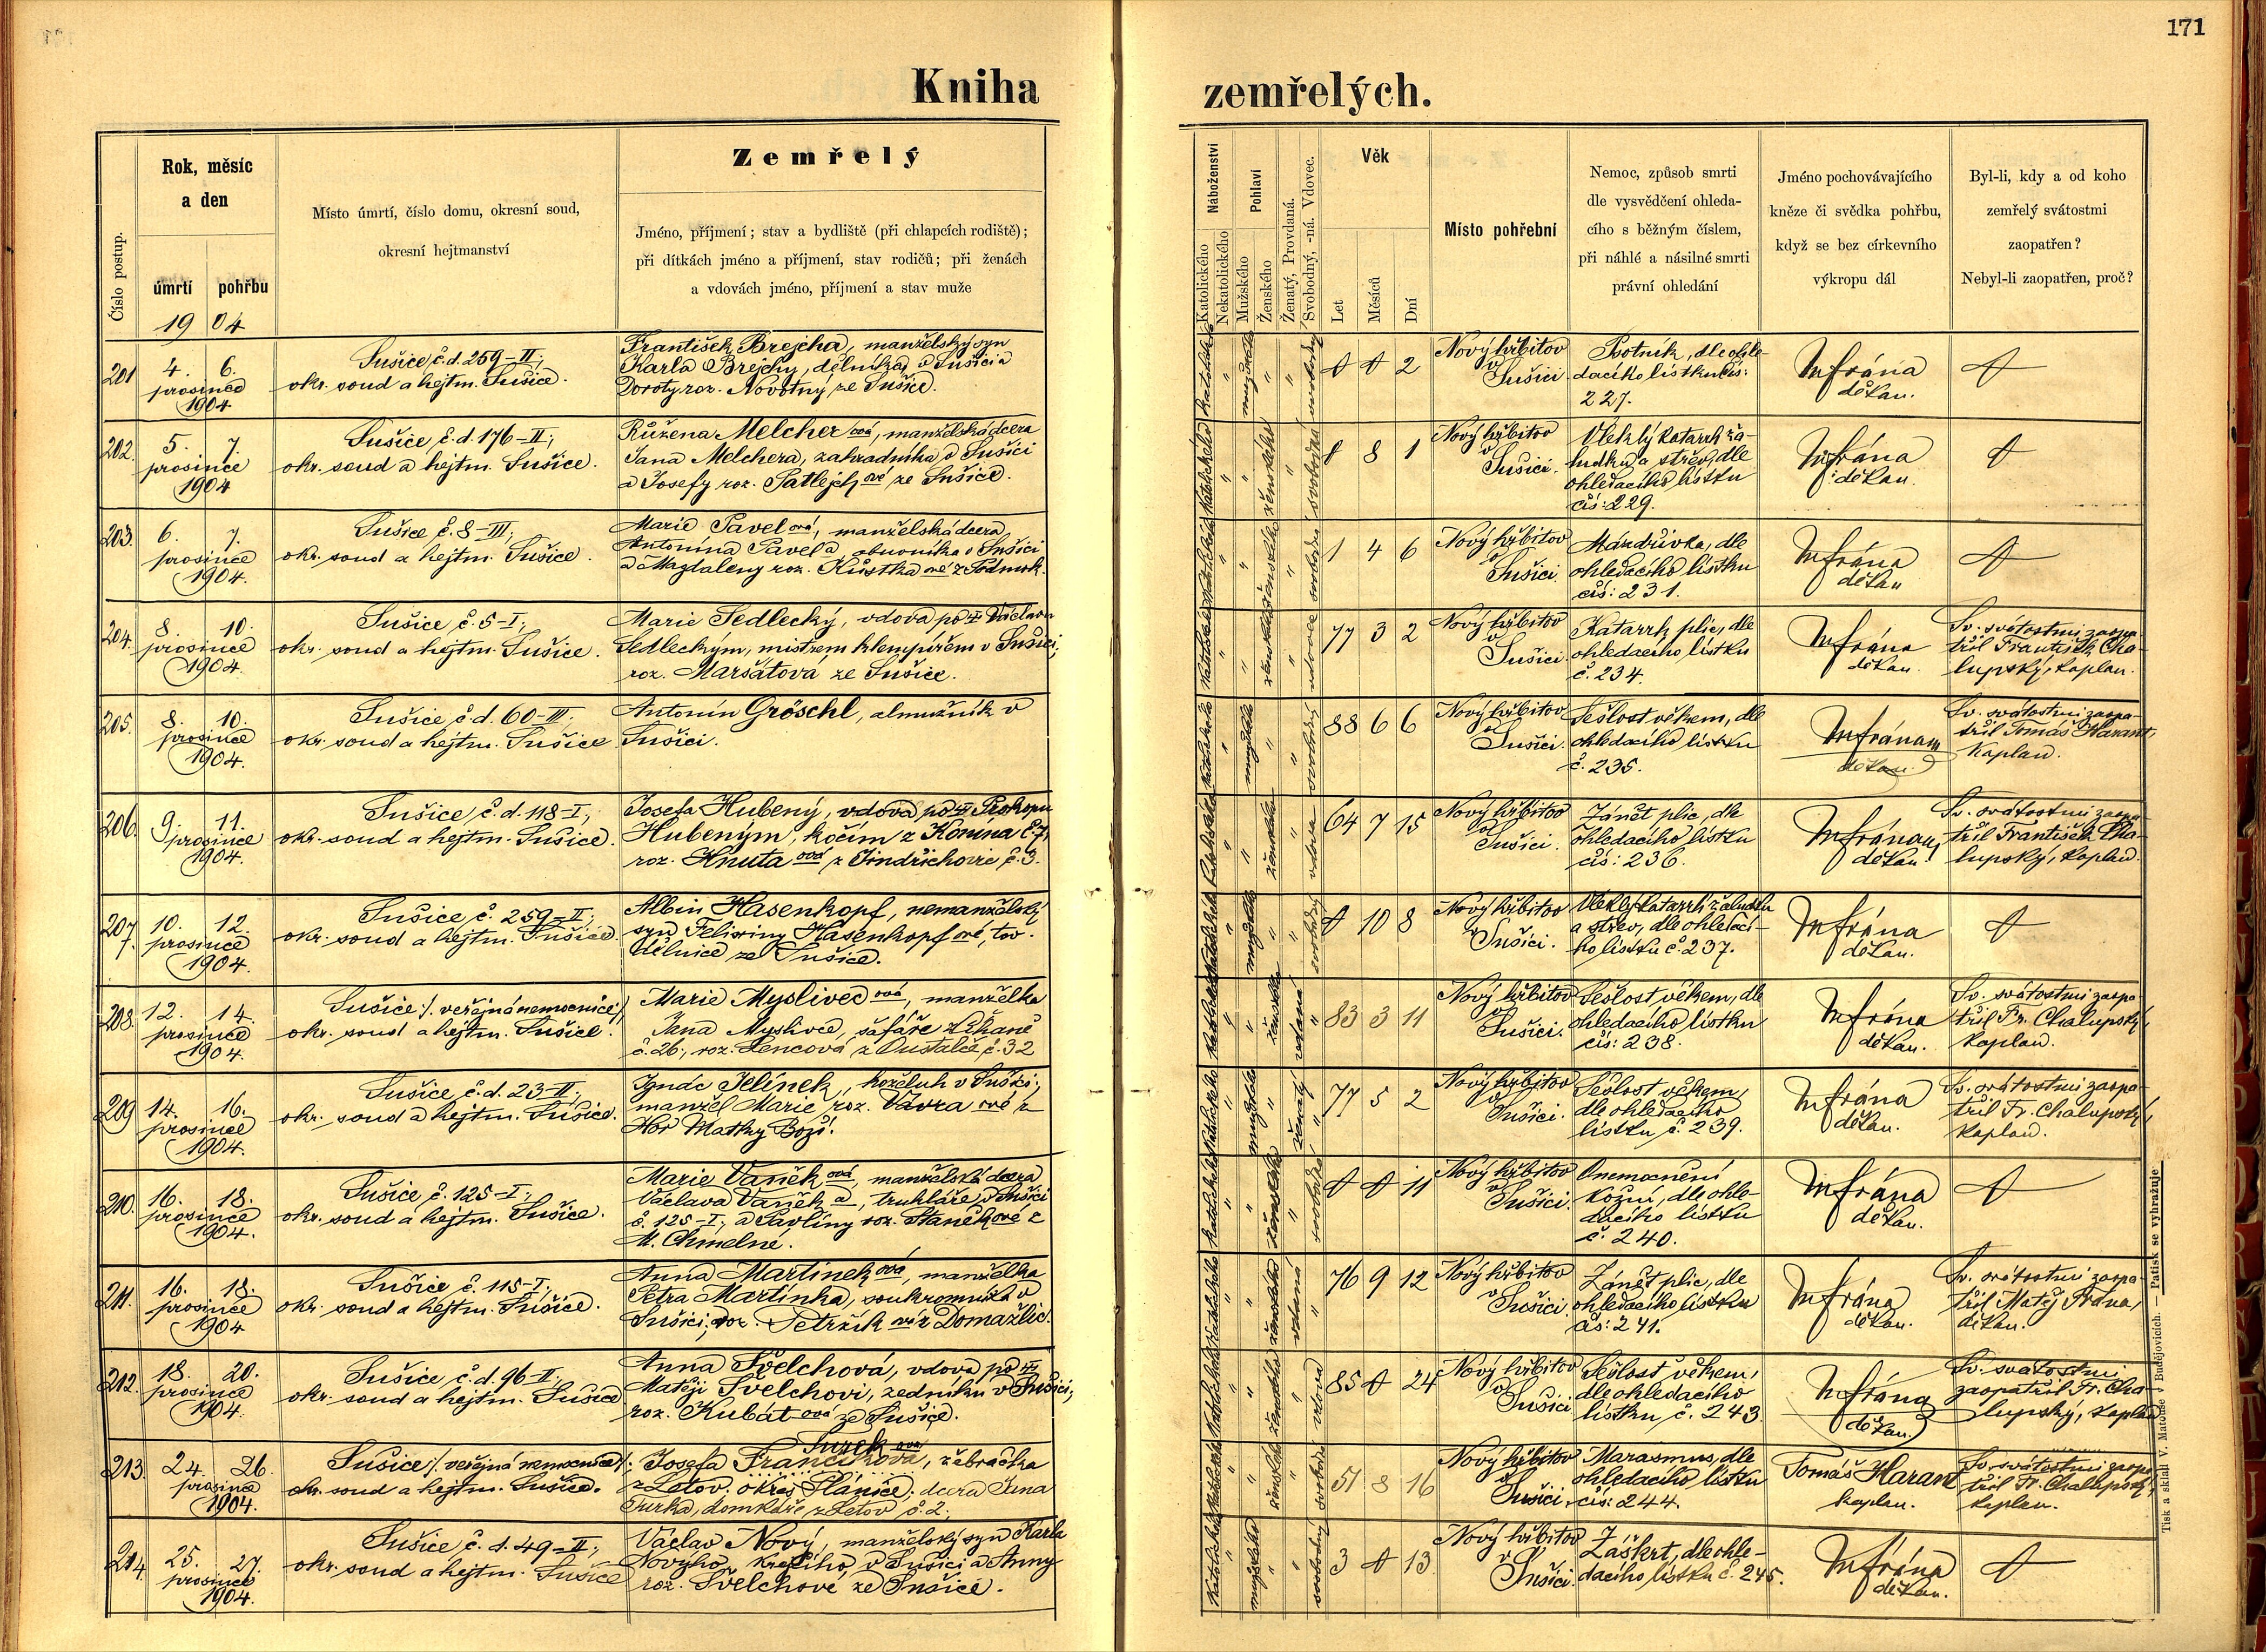 171
Kniha
zemřelých.
Číslo postup.
Rok, měsíc
a den
úmrtí
pohřbu
1904
Místo úmrtí, číslo domu, okresní soud,
okresní hejtmanství
Zemřelý
Jméno, příjmení; stav a bydliště (při chlapcích rodiště);
při dítkách jméno a příjmení, stav rodičů; při ženách
a vdovách jméno, příjmení a stav muže
Náboženství
Katolického
Nekatolického
Pohlaví
Mužského
Ženského
Ženatý, Provdaná.
Svobodný, -ná. Vdovec.
Věk
Let
Měsíců
Dní
Místo pohřební
Nemoc, způsob smrti
dle vysvědčení ohleda-
cího s běžným číslem,
při náhlé a násilné smrti
právní ohledání
Jméno pochovávajícího
kněze či svědka pohřbu,
když se bez církevního
výkropu dál
Byl-li, kdy a od koho
zemřelý svátostmi
zaopatřen?
Nebyl-li zaopatřen, proč?
201
4. 6.
prosince
1904
Sušice č.d. 259-II;
okr. soud a hejtm. Sušice.
František Brejcha, manželský syn
Karla Brejchy, dělníka v Sušici a
Doroty roz. Novotný ze Sušice.
katolického " mužského " " svobodný
0 0 2
Nový hřbitov
v
Sušici
Psotník, dle ohle-
dacího lístku čís:
227.
M Frána
děkan.
0
202.
5. 7.
prosince
1904
Sušice č.d. 176-II;
okr. soud a hejtm. Sušice.
Růžena Melcher ová, manželská dcera
Jana Melchera, zahradníka v Sušici
a Josefy roz. Patlejch ové ze Sušice.
katolického " " ženského " svobodná
0 8 1
Nový hřbitov
v
Sušici.
Vleklý katarrh ža-
ludku a střev, dle
ohledacího lístku
čís: 229.
M Frána
děkan.
0
203.
6. 7.
prosince
1904.
Sušice č. 8-III;
okr. soud a hejtm. Sušice.
Marie Pavel ová, manželská dcera
Antonína Pavla, obuvníka v Sušici
a Magdaleny roz. Kůstka ové z Podmok.
katolického " " ženského " svobodná
1 4 6
Nový hřbitov
v
Sušici
Mázdřivka, dle
ohledacího lístku
čís: 231.
M Frána
děkan
0
204.
8. 10.
prosince
1904.
Sušice č. 5-I;
okr. soud a hejtm. Sušice.
Marie Sedlecký, vdova po † Václavu
Sedleckým, mistrem klempířem v Sušici,
roz. Maršátová ze Sušice.
katolického " " ženského " vdova
77 3 2
Nový hřbitov
v
Sušici.
Katarrh plic, dle
ohledacího lístku
č. 234.
M Frána
děkan.
Sv. svátostmi zaopa-
třil František Cha-
lupský, kaplan.
205.
8. 10.
prosince
1904.
Sušice č.d. 60-III;
okr. soud a hejtm. Sušice
Antonín Gröschl, almužník v
Sušici.
katolického " mužského " " svobodný
88 6 6
Nový hřbitov
v
Sušici.
Sešlost věkem, dle
ohledacího lístku
č. 235.
M Frána
děkan
Sv. svátostmi zaopa-
třil Tomáš Harant,
kaplan.
206.
9. 11.
prosince
1904.
Sušice č.d. 118-I;
okr. soud a hejtm. Sušice.
Josefa Hubený, vdova po † Prokopu
Hubeným, kočím z Konína č. 7,
roz. Hnuta ová z Jindřichovic č. 3.
katolického " " ženského vdova
64 7 15
Nový hřbitov
v
Sušici.
Zánět plic, dle
ohledacího lístku
čís: 236.
M Frána
děkan
Sv. svátostmi zaopa-
třil František Cha-
lupský, kaplan.
207.
10. 12.
prosince
1904.
Sušice č. 259-II;
okr. soud a hejtm. Sušice.
Albin Hasenkopf, nemanželský
syn Felixiny Hasenkopf ové, tov.
dělnice ze Sušice.
katolického " mužského " " svobodný
0 10 8
Nový hřbitov
v
Sušici.
Vleklý katarrh žaludku
a střev, dle ohledací-
ho lístku č. 237.
M Frána
děkan.
0
208.
12. 14.
prosince
1904.
Sušice /. veřejná nemocnice/
okr. soud a hejtm. Sušice.
Marie Myslivec ová, manželka
Jana Myslivce, šafáře z
č. 26; roz. Lencová z č. 32
katolického " " ženského vdaná "
83 3 11
Nový hřbitov
v
Sušici.
Sešlost věkem, dle
ohledacího lístku
čís: 238.
M Frána
děkan.
Sv. svátostmi zaopa-
třil Fr. Chalupský,
kaplan.
209
14. 16.
prosince
1904.
Sušice č.d. 23-II;
okr. soud a hejtm. Sušice.
Ignác Jelínek, koželuh v Sušici,
manžel Marie roz. Vávra ové z
Hor Matky Boží.
katolického " mužského " ženatý "
77 5 2
Nový hřbitov
v
Sušici.
Sešlost věkem,
dle ohledacího
lístku č. 239.
M Frána
děkan.
Sv. svátostmi zaopa-
třil Fr. Chalupský,
kaplan.
210.
16. 18.
prosince
1904.
Sušice č. 125-I;
okr. soud a hejtm. Sušice.
Marie Vaněk ová, manželská dcera
Václava Vaněk a, truhláře v Sušici
č. 125-I; a Pavlíny roz. Staněkové z
M. Chmelné.
katolického " " ženského " svobodná
0 0 11
Nový hřbitov
v
Sušici.
Onemocnění
kožní, dle ohle-
dacího lístku
č. 240.
M Frána
děkan.
0
211.
16. 18.
prosince
1904
Sušice č. 115-I;
okr. soud a hejtm. Sušice.
Anna Martínek ová, manželka
Petra Martínka, soukromníka v
Sušici, roz. Petržík ová z Domažlic.
katolického " " ženského vdaná "
76 9 12
Nový hřbitov
v
Sušici
Zánět plic, dle
ohledacího lístku
čís: 241.
M Frána
děkan.
Sv. svátostmi zaopa-
třil Matěj Frána,
děkan.
212.
18. 20.
prosince
1904.
Sušice č.d. 96-II;
okr. soud a hejtm. Sušice
Anna Švelchová, vdova po †
Matěji Švelchovi, zedníku v Sušici;
roz. Kubát ová ze Sušice.
katolického " " ženského " vdova
85 0 24
Nový hřbitov
v
Sušici
Sešlost věkem,
dle ohledacího
lístku č. 243
M Frána
děkan
Sv. svátostmi
zaopatřil Fr. Cha-
lupský, kaplan
213.
24. 26.
prosince
1904.
Sušice /. veřejná nemocnice/;
okr. soud a hejtm. Sušice.
Turek ová
Josefa Frančíková, žebračka
z Letov. okres Plánice; dcera Jana
Turka, domkáře z Letov č. 2.
katolického " " ženského " svobodná
51 8 16
Nový hřbitov
v
Sušici
Marasmus, dle
ohledacího lístku
čís: 244.
Tomáš Harant
kaplan.
Sv. svátostmi zaopa-
třil Fr. Chalupský,
kaplan.
214.
25. 27.
prosince
1904.
Sušice č. d. 49-II;
okr. soud a hejtm. Sušice
Václav Nový, manželský syn Karla
Nového, krejčího v Sušici a Anny
roz. Švelchové ze Sušice.
katolického " mužského " " svobodný
3 0 13
Nový hřbitov
v
Sušici.
Záškrt, dle ohle-
dacího lístku č. 245.
M Frána
děkan.
0
Tisk a sklad V. Matouše v Budějovicích. — Patisk se vyhražuje